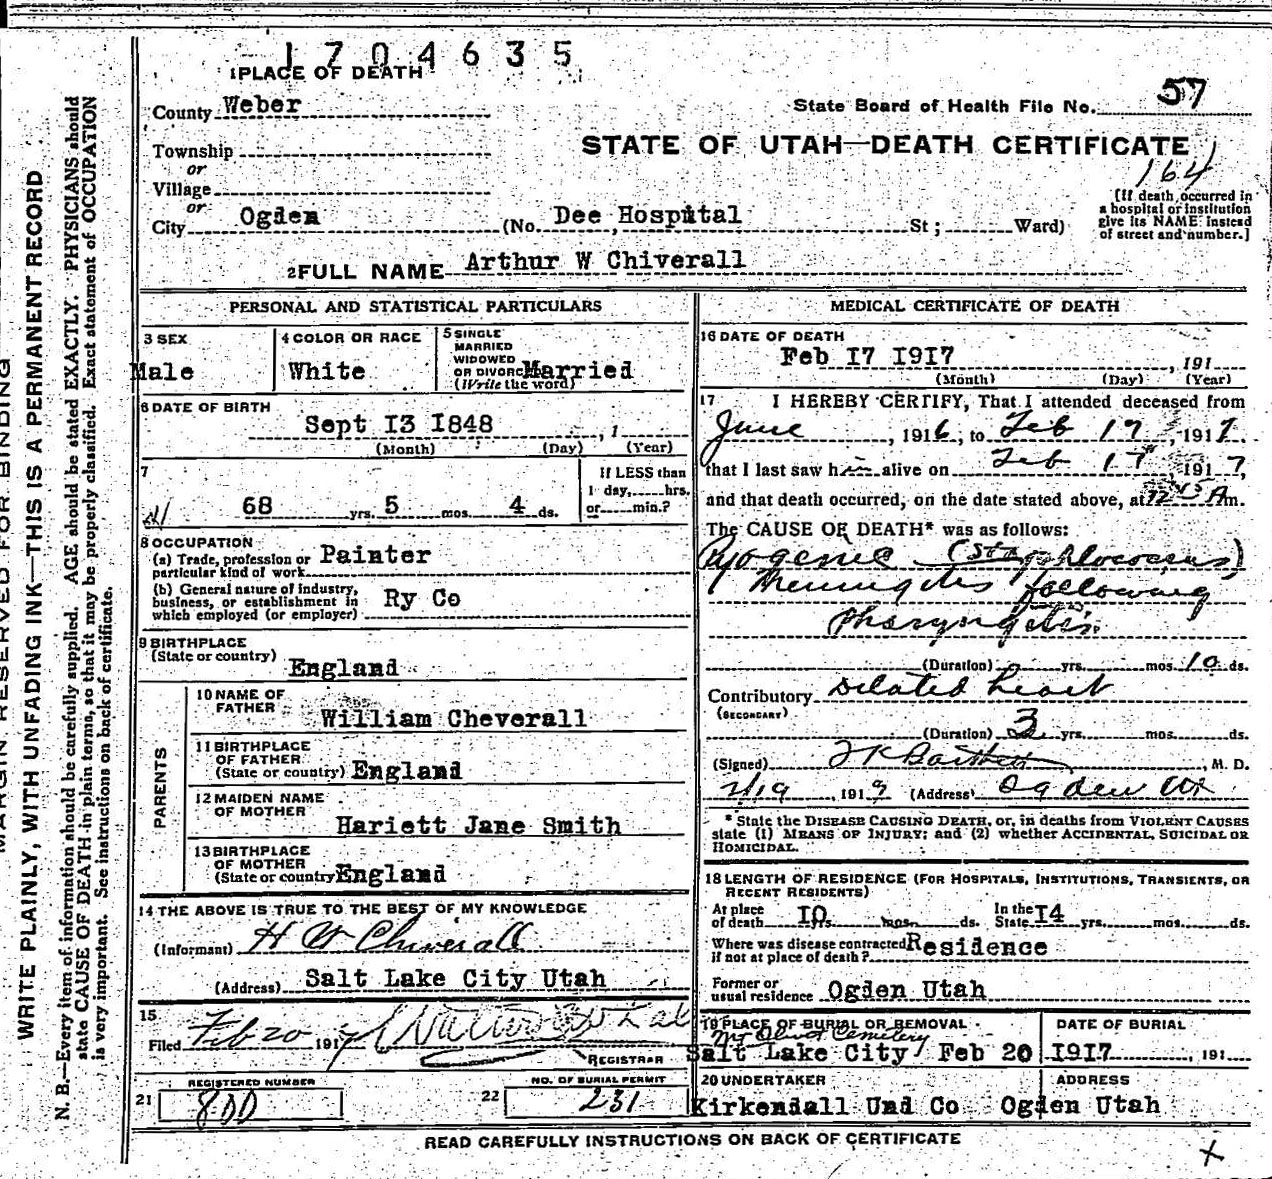 1704635
1 PLACE OF DEATH
County Weber
State Board of Health File No. 57
STATE OF UTAH—DEATH CERTIFICATE
164
Township
or
Village
or
City Ogden (No. Dee Hospital St; Ward)
[If death occurred in
a hospital or institution
give its NAME instead
of street and number.]
2 FULL NAME Arthur W Chiverall
PERSONAL AND STATISTICAL PARTICULARS
3 SEX
Male
4 COLOR OR RACE
White
5 SINGLE
MARRIED
WIDOWED
OR DIVORCED Married
(Write the word)
6 DATE OF BIRTH
Sept I3 I848 , 1
(Month) (Day) (Year)
7
68 yrs. 5 mos. 4 ds.
If LESS than
1 day, hrs.
or min.?
8 OCCUPATION
(a) Trade, profession or Painter
particular kind of work
(b) General nature of industry,
business, or establishment in Ry Co
which employed (or employer)
9 BIRTHPLACE
(State or country)
England
PARENTS
10 NAME OF
FATHER
William Cheverall
11 BIRTHPLACE
OF FATHER
(State or country) England
12 MAIDEN NAME
OF MOTHER
Hariett Jane Smith
13 BIRTHPLACE
OF MOTHER
(State or country England
14 THE ABOVE IS TRUE TO THE BEST OF MY KNOWLEDGE
(Informant) H W Chiverall
(Address) Salt Lake City Utah
15
Filed Feb 20 191
REGISTRAR
REGISTERED NUMBER
21 800
NO. OF BURIAL PERMIT
22 231
MEDICAL CERTIFICATE OF DEATH
16 DATE OF DEATH
Feb I7 I9I7 , 191
(Month) (Day) (Year)
17 I HEREBY CERTIFY, That I attended deceased from
June , 1916, to Feb 17 , 1917,
that I last saw him alive on Feb 17 1917,
and that death occurred, on the date stated above, at 12 15 Am.
The CAUSE OF DEATH* was as follows:
Pyogenic (Staphlococcus)
Meningitis following
Pharyngitis.
(Duration) yrs. mos. 10 ds.
Contributory Dilated heart
(SECONDARY)
(Duration) 3 yrs. mos. ds.
(Signed) , M. D.
2/19 , 191 (Address) Ogden Ut
* State the DISEASE CAUSING DEATH, or, in deaths from VIOLENT CAUSES
state (1) MEANS OF INJURY; and (2) whether ACCIDENTAL, SUICIDAL OR
HOMICIDAL.
18 LENGTH OF RESIDENCE (FOR HOSPITALS, INSTITUTIONS, TRANSIENTS, OR
RECENT RESIDENTS)
At place
of death I0 yrs. mos. ds.
In the
State I4 yrs. mos. ds.
Where was disease contracted Residence
if not at place of death?
Former or
usual residence Ogden Utah
19 PLACE OF BURIAL OR REMOVAL
Mt Olivet Cemetery
Salt Lake City
DATE OF BURIAL
Feb 20 I9I7 , 191
20 UNDERTAKER
Kirkendall Und Co
ADDRESS
Ogden Utah
READ CAREFULLY INSTRUCTIONS ON BACK OF CERTIFICATE
MARGIN RESERVED FOR BINDING
WRITE PLAINLY, WITH UNFADING INK—THIS IS A PERMANENT RECORD
N. B.—Every item of information should be carefully supplied. AGE should be stated EXACTLY. PHYSICIANS should
state CAUSE OF DEATH in plain terms, so that it may be properly classified. Exact statement of OCCUPATION
is very important. See instructions on back of certificate.